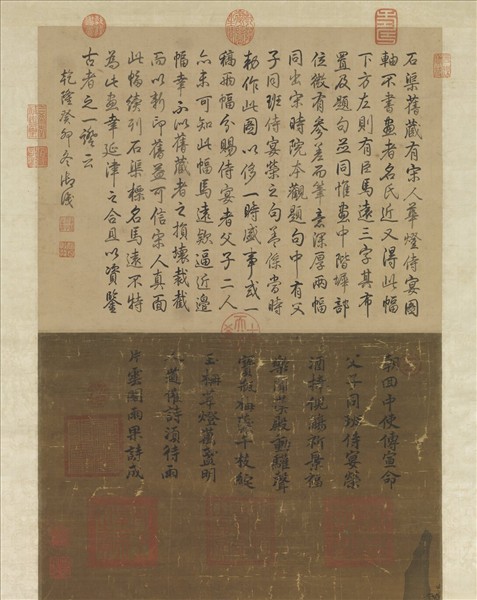 石渠舊藏有宋人華燈侍宴圖
軸不書畫者名氏近又得此幅
下方左則有臣馬遠三字其布
置及題句並同惟畫中階墀部
位微有參差而筆意深厚兩幅
同出宋時院本觀題句中有父
子同班侍宴榮之句蓋係當時
勅作此圖以侈一時盛事或一
稿兩幅分賜侍宴者父子二人
亦未可知此幅馬遠款逼近邊
幅幸不似舊藏者之損壞裁截
而以新印舊益可信宋人真面
此幅續列石渠標名馬遠不特
為此畫幸延津之合且以資鑒
古者之一證云
乾隆癸卯冬御識
朝回中使傳宣命
父子同班侍宴榮
酒捧倪觴祈景福
樂聞漢殿動驩聲
寶瓶梅蘂千枝綻
玉栅華燈萬盞明
人道催詩須待雨
片雲閣雨果詩成